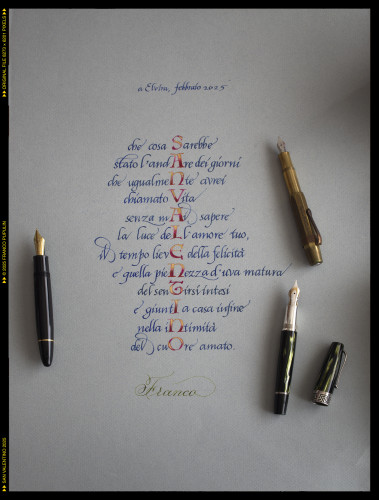 a Elvira, febbraio 2025
che cosa Sarebbe
stato l'andAre dei giorni
che ugualmeNte avrei
chiamato Vita
senza mAi sapere
la luce deLl'amore tuo,
il tempo liEve della felicità
e quella pieNezza d'uva matura
del senTirsi intesi
e giunti a casa infine
nella iNtimità
del cuOre amato.
Franco
SAN VALENTINO 2025
© 2025 FRANCO PUPULIN
ORIGINAL FILE PIXELS